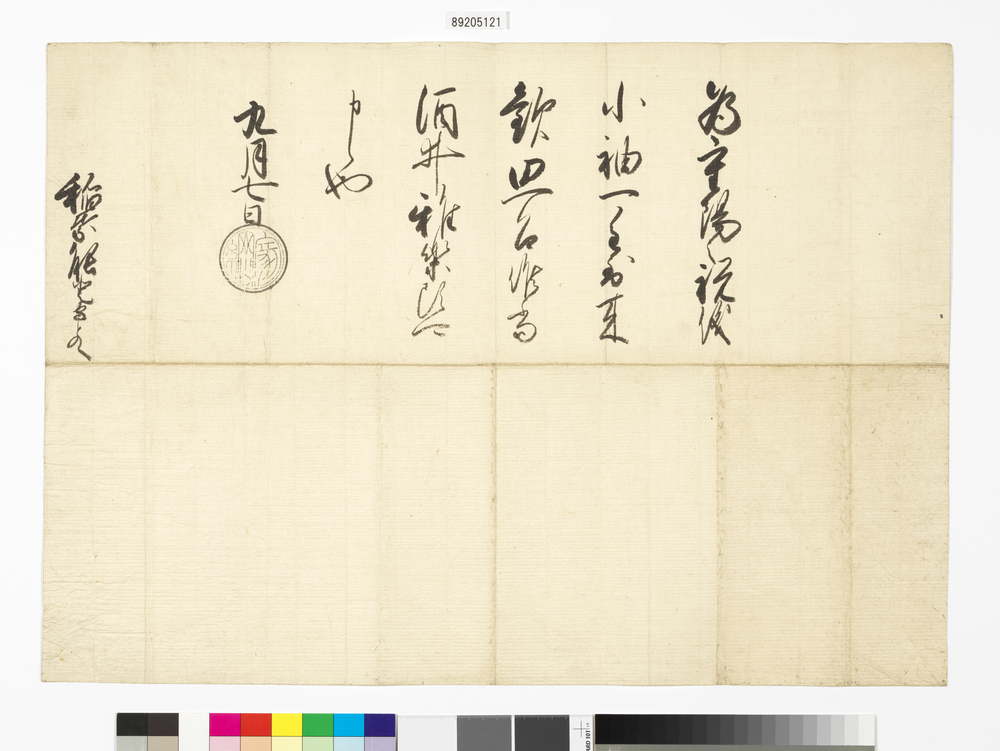 89205121
為重陽之祝儀
小袖一重到来
歓思召候尚
酒井雅楽頭可
申候也
九月七日
稲葉能登守とのへ